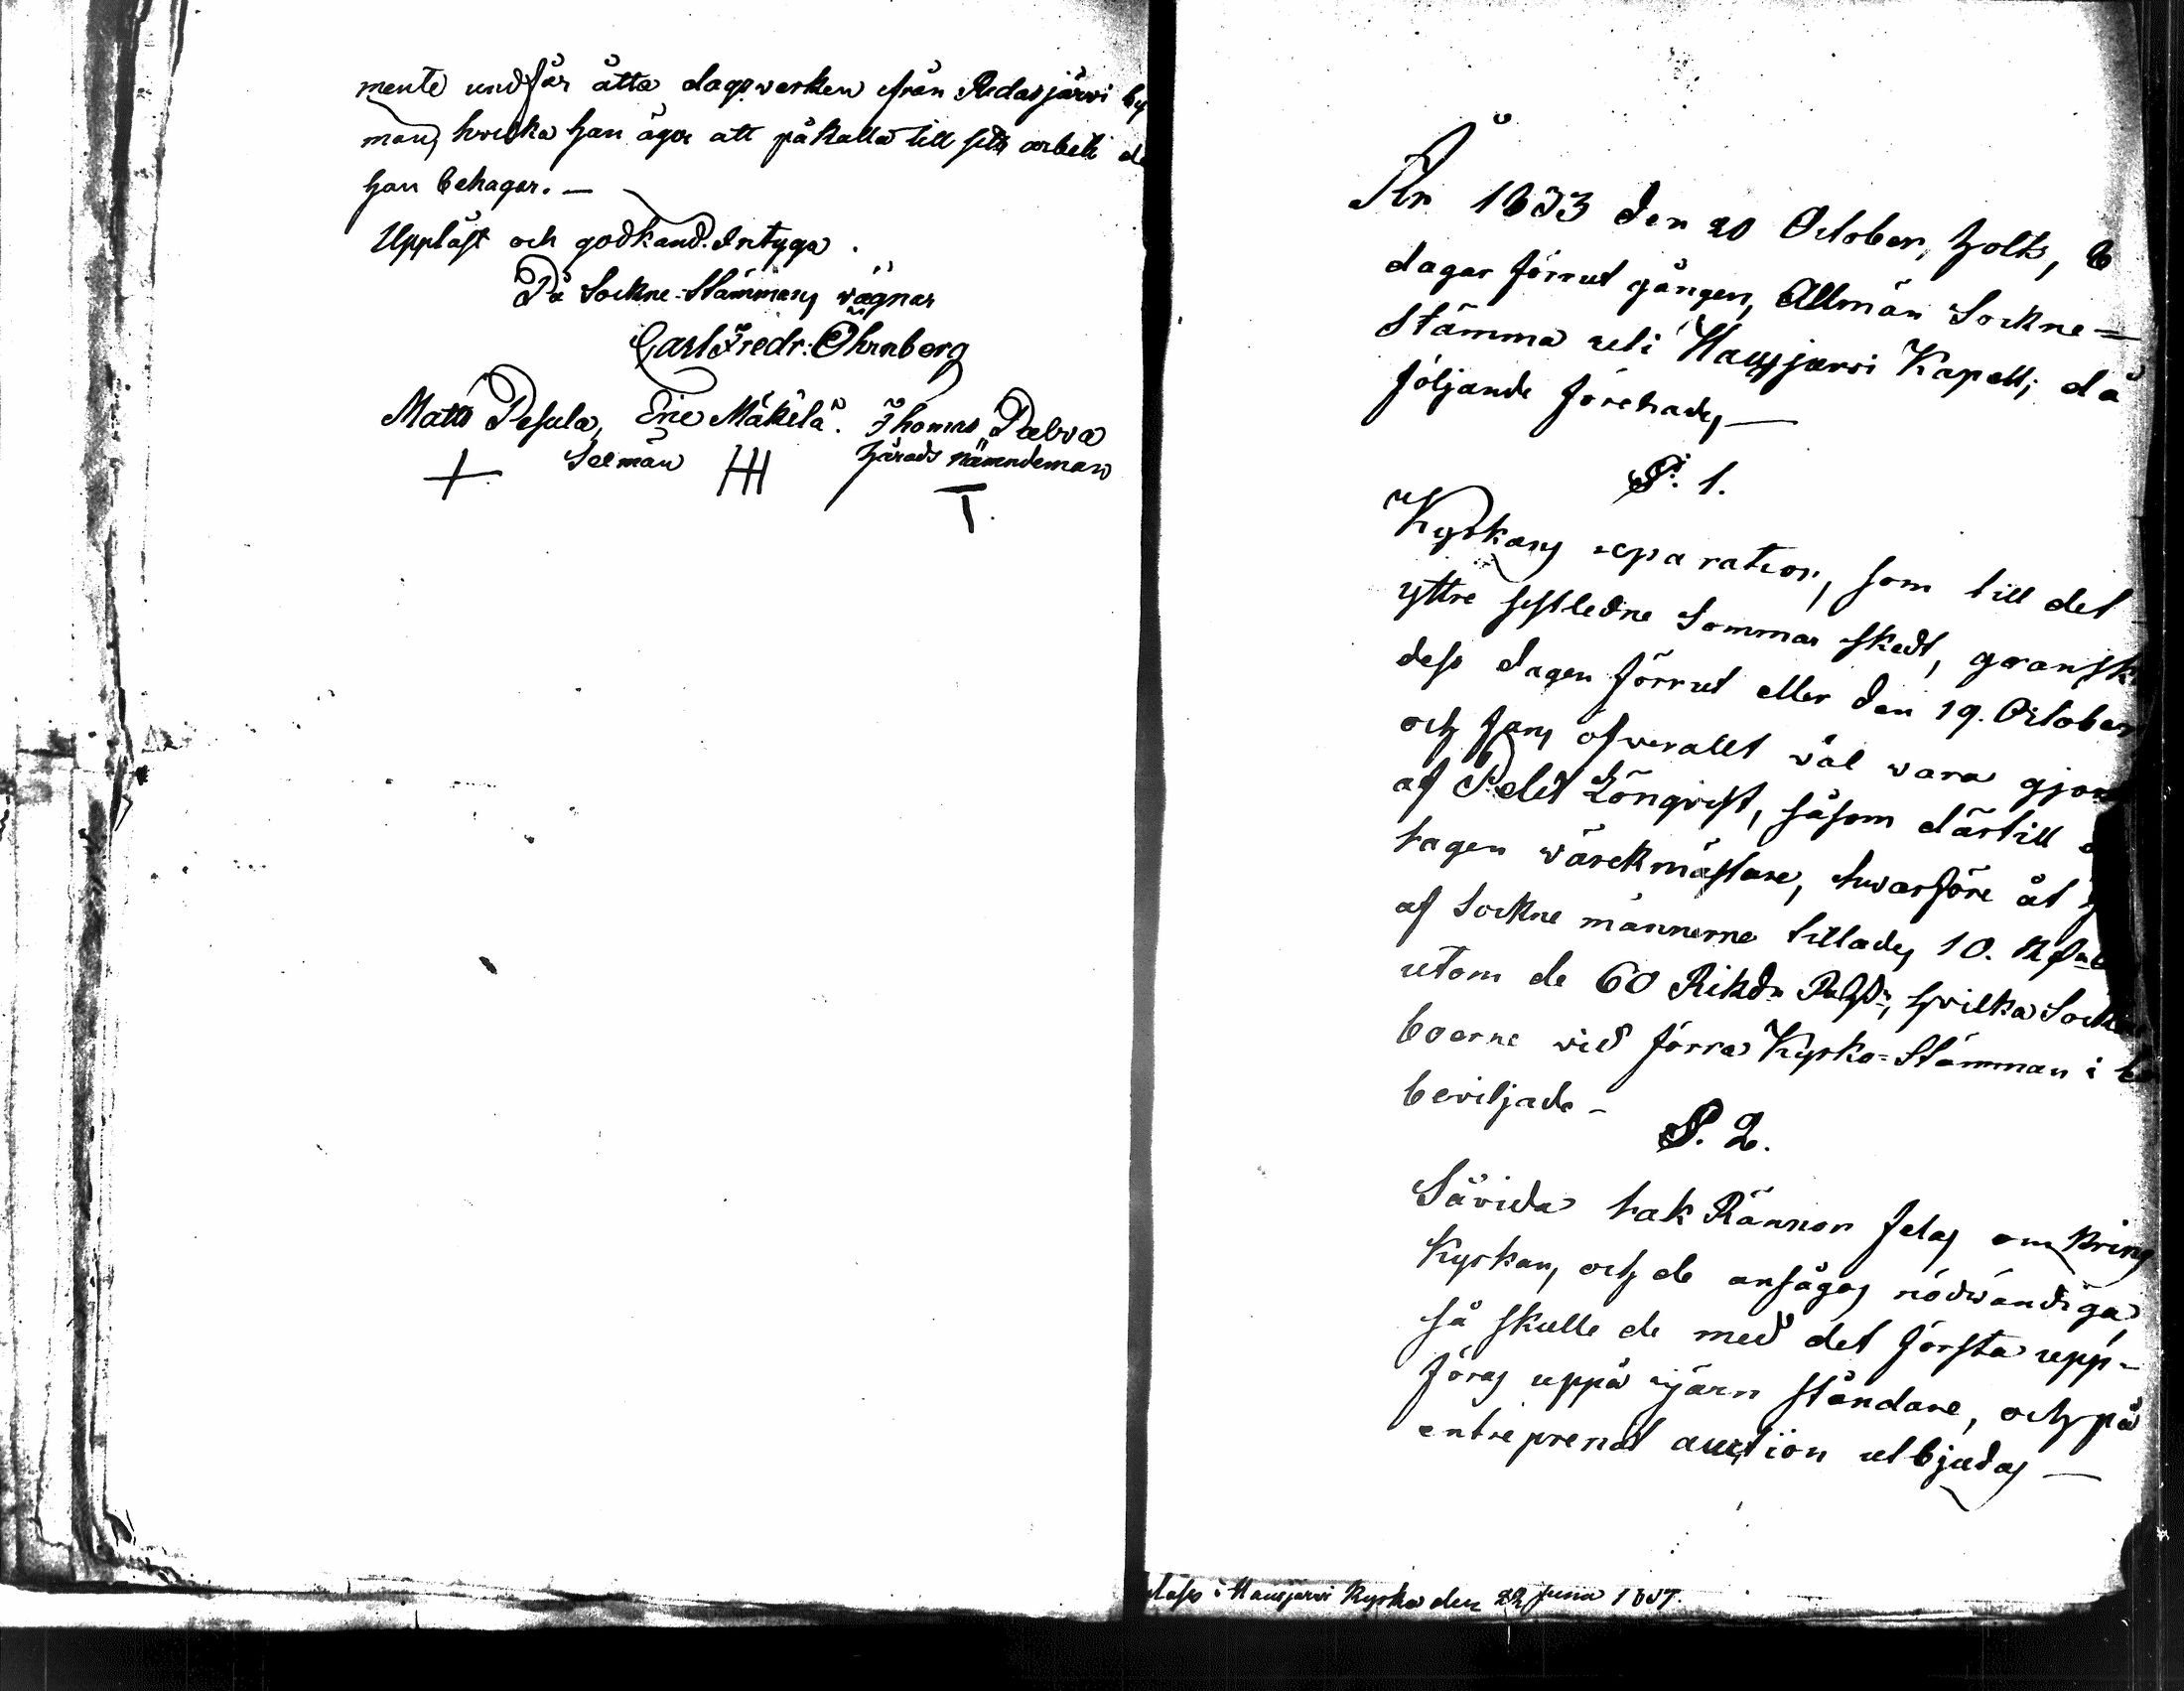 mente undfår åtta dagswerken från Ridasjärvi by
man, hvilka han äger att påkalla till sitt arbete då
han behagar. —
Uppläst och godkänd. Intyga.
På Sockne-Stämmans wägnar
Carl Fredr: Öhrnberg
Matts Pesula, Eric Mäkilä. Thomas Palva
Sexman Härads nämndeman
År 1833 den 20 October, holts, 8
dagar förrut gången, Allmän Sockne=
Stämma uti Hausjärvi Kapell; då
följande förehades —
§. 1.
Kyrkans reparation, som till det
yttre sistledne Sommar skedt, gransk
dess dagen förrut eller den 19. October
och fans öfverallt väl wara gjord
af Lönqvist, såsom därtill
tagen wärckmästare, hwarföre åt
af Sockne männerne tillades 10. R
utom de 60 Rikdr, hvilka Sockne
boerne vid förra Kyrko-Stämman i
beviljade —
§. 2.
Såvida tak Rännor felas omkring
Kyrkan, och de ansågos nödwändiga,
så skulle de med det första upp-
föras uppå järn ståndare, och på
entreprenat auction utbjudas —
i Hausjärvi Kyrka den 22 Junii